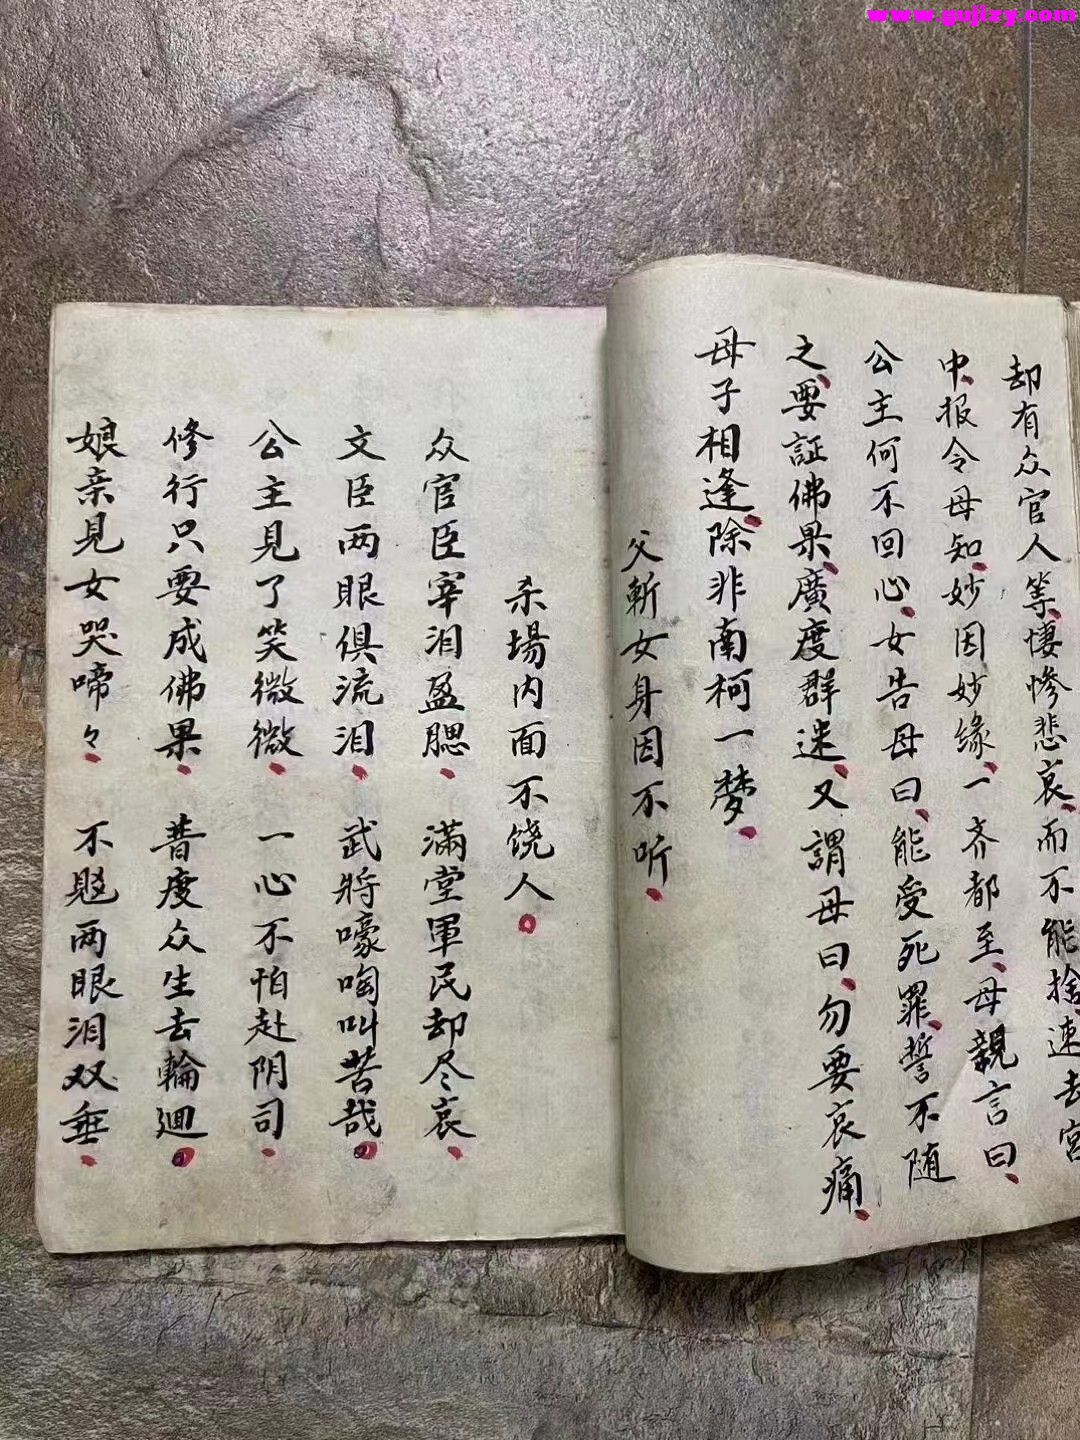 www.gujizy.com
却有众官人等、悽惨悲哀、而不能捨、速去宫
中、报令母知、妙因妙缘、一齐都至、母親言曰、
公主何不回心、女告母曰、能受死罪、誓不随
之、要証佛果、廣度群迷、又謂母曰、勿要哀痛、
母子相逢、除非南柯一梦、
父斬女身因不听、
杀場内面不饶人。
众官臣宰泪盈腮、满堂軍民却尽哀、
文臣两眼俱流泪、武將嚎啕叫苦哉。
公主見了笑微微、一心不怕赴阴司、
修行只要成佛果、普度众生去輪廻。
娘亲見女哭啼々、不覚两眼泪双垂、